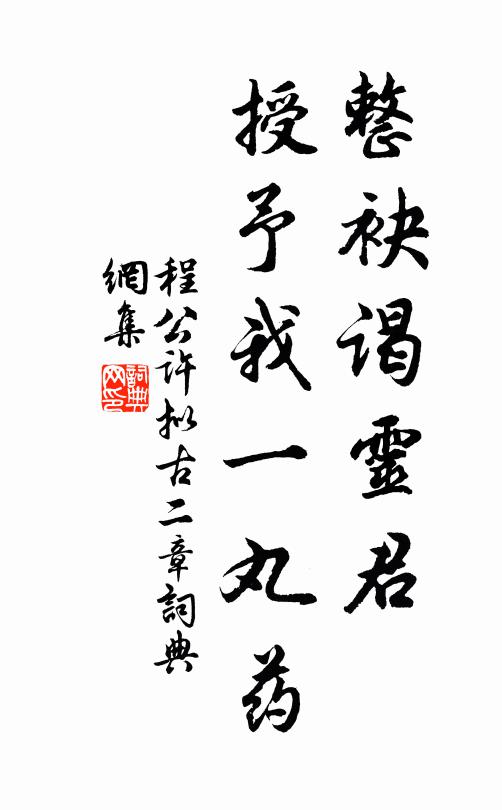 整袂谒靈君
授予我一丸药
程公许拟古二章詞典
網集
詞典网印